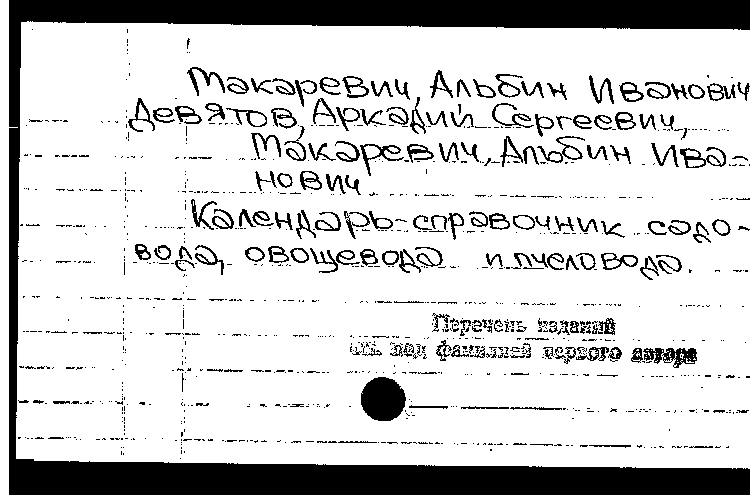 Макаревич, Альбин Иванович
Девятов, Аркадий Сергеевич,
Макаревич, Альбин Ива-
нович
Календарь-справочник садо-
вода, овощевода и пчеловода.
Перечень изданий
см. под фамилией первого автора